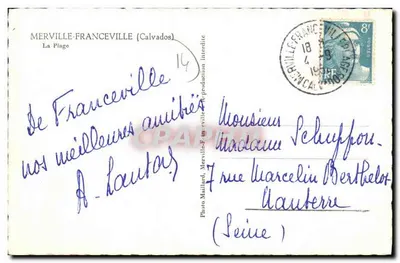 MERVILLE-FRANCEVILLE (Calvados)
La Plage
14
De Franceville
nos meilleures amitiés
Photo Maillard, Merville-Franceville reproduction interdite
Monsieur
Madame Schuppon
7 rue Marcelin Berthelot
Nanterre
(Seine)
MERVILLE-FRANCEVILLE-PLAGE
CALVADOS
18
4
8F